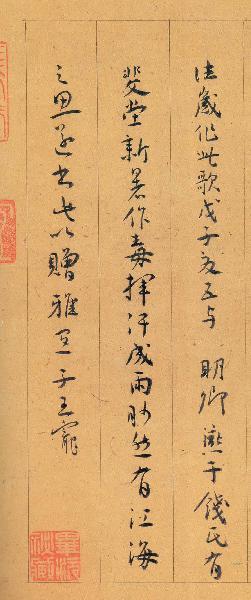 往歲作此歌戊子夏五与 明卿燕于錢氏有
斐堂新暑作毒揮汗成雨眇然有江海
之思遂書此以贈雅宜子王寵